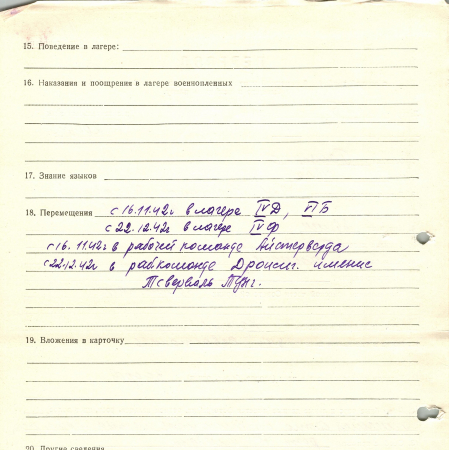 15. Поведение в лагере:
16. Наказания и поощрения в лагере военнопленных
17. Знание языков
18. Перемещения с 16.11.42г в лагере IVД, VIБ
с 22.12.42г в лагере IVФ
с 16.11.42г в рабочей команде
с 22.12.42г в рабкоманде имение
19. Вложения в карточку
20. Другие сведения